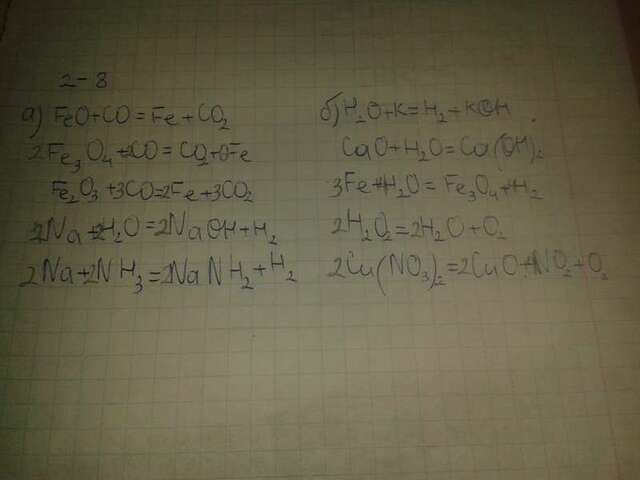 2-8
а) FeO+CO=Fe+CO₂
2Fe₃O₄+CO=CO₂+6Fe
Fe₂O₃+3CO=2Fe+3CO₂
2Na+2H₂O=2NaOH+H₂
2Na+2NH₃=2NaNH₂+H₂
б) H₂O+K=H₂+KOH
CaO+H₂O=Ca(OH)₂
3Fe+H₂O=Fe₃O₄+H₂
2H₂O₂=2H₂O+O₂
2Cu(NO₃)₂=2CuO+4NO₂+O₂